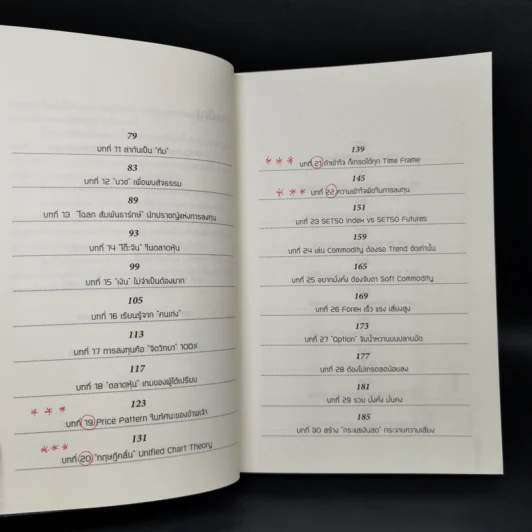 79
บทที่ 11 ล่ากันเป็น "ทีม"
83
บทที่ 12 "บวช" เพื่อพบสัจธรรม
89
บทที่ 13 "โฉลก สัมพันธารักษ์" นักปราชญ์แห่งการลงทุน
93
บทที่ 14 "โต๊ะจีน" ในตลาดหุ้น
99
บทที่ 15 "เงิน" ไม่จำเป็นต้องมาก
105
บทที่ 16 เรียนรู้จาก "คนเก่ง"
113
บทที่ 17 การลงทุนคือ "จิตวิทยา" 100%
117
บทที่ 18 "ตลาดหุ้น" เกมของผู้ได้เปรียบ
123
บทที่ 19 Price Pattern ในทัศนะของข้าพเจ้า
131
บทที่ 20 "ทฤษฎีคลื่น" Unified Chart Theory
139
บทที่ 21 ถ้าเข้าใจ ก็เทรดได้ทุก Time Frame
145
บทที่ 22 ความเข้าใจผิดในการลงทุน
151
บทที่ 23 SET50 Index vs SET50 Futures
159
บทที่ 24 เล่น Commodity ต้องรอ Trend ชัดเท่านั้น
165
บทที่ 25 อยากมั่งคั่ง ต้องจับตา Soft Commodity
169
บทที่ 26 Forex เร็ว แรง เสี่ยงสูง
173
บทที่ 27 "Option" จิบน้ำหวานบนปลายมีด
177
บทที่ 28 ต้องไม่เทรดสดน้อยลง
181
บทที่ 29 รวย มั่งคั่ง มั่นคง
185
บทที่ 30 สร้าง "กระแสเงินสด" กระจายความเสี่ยง